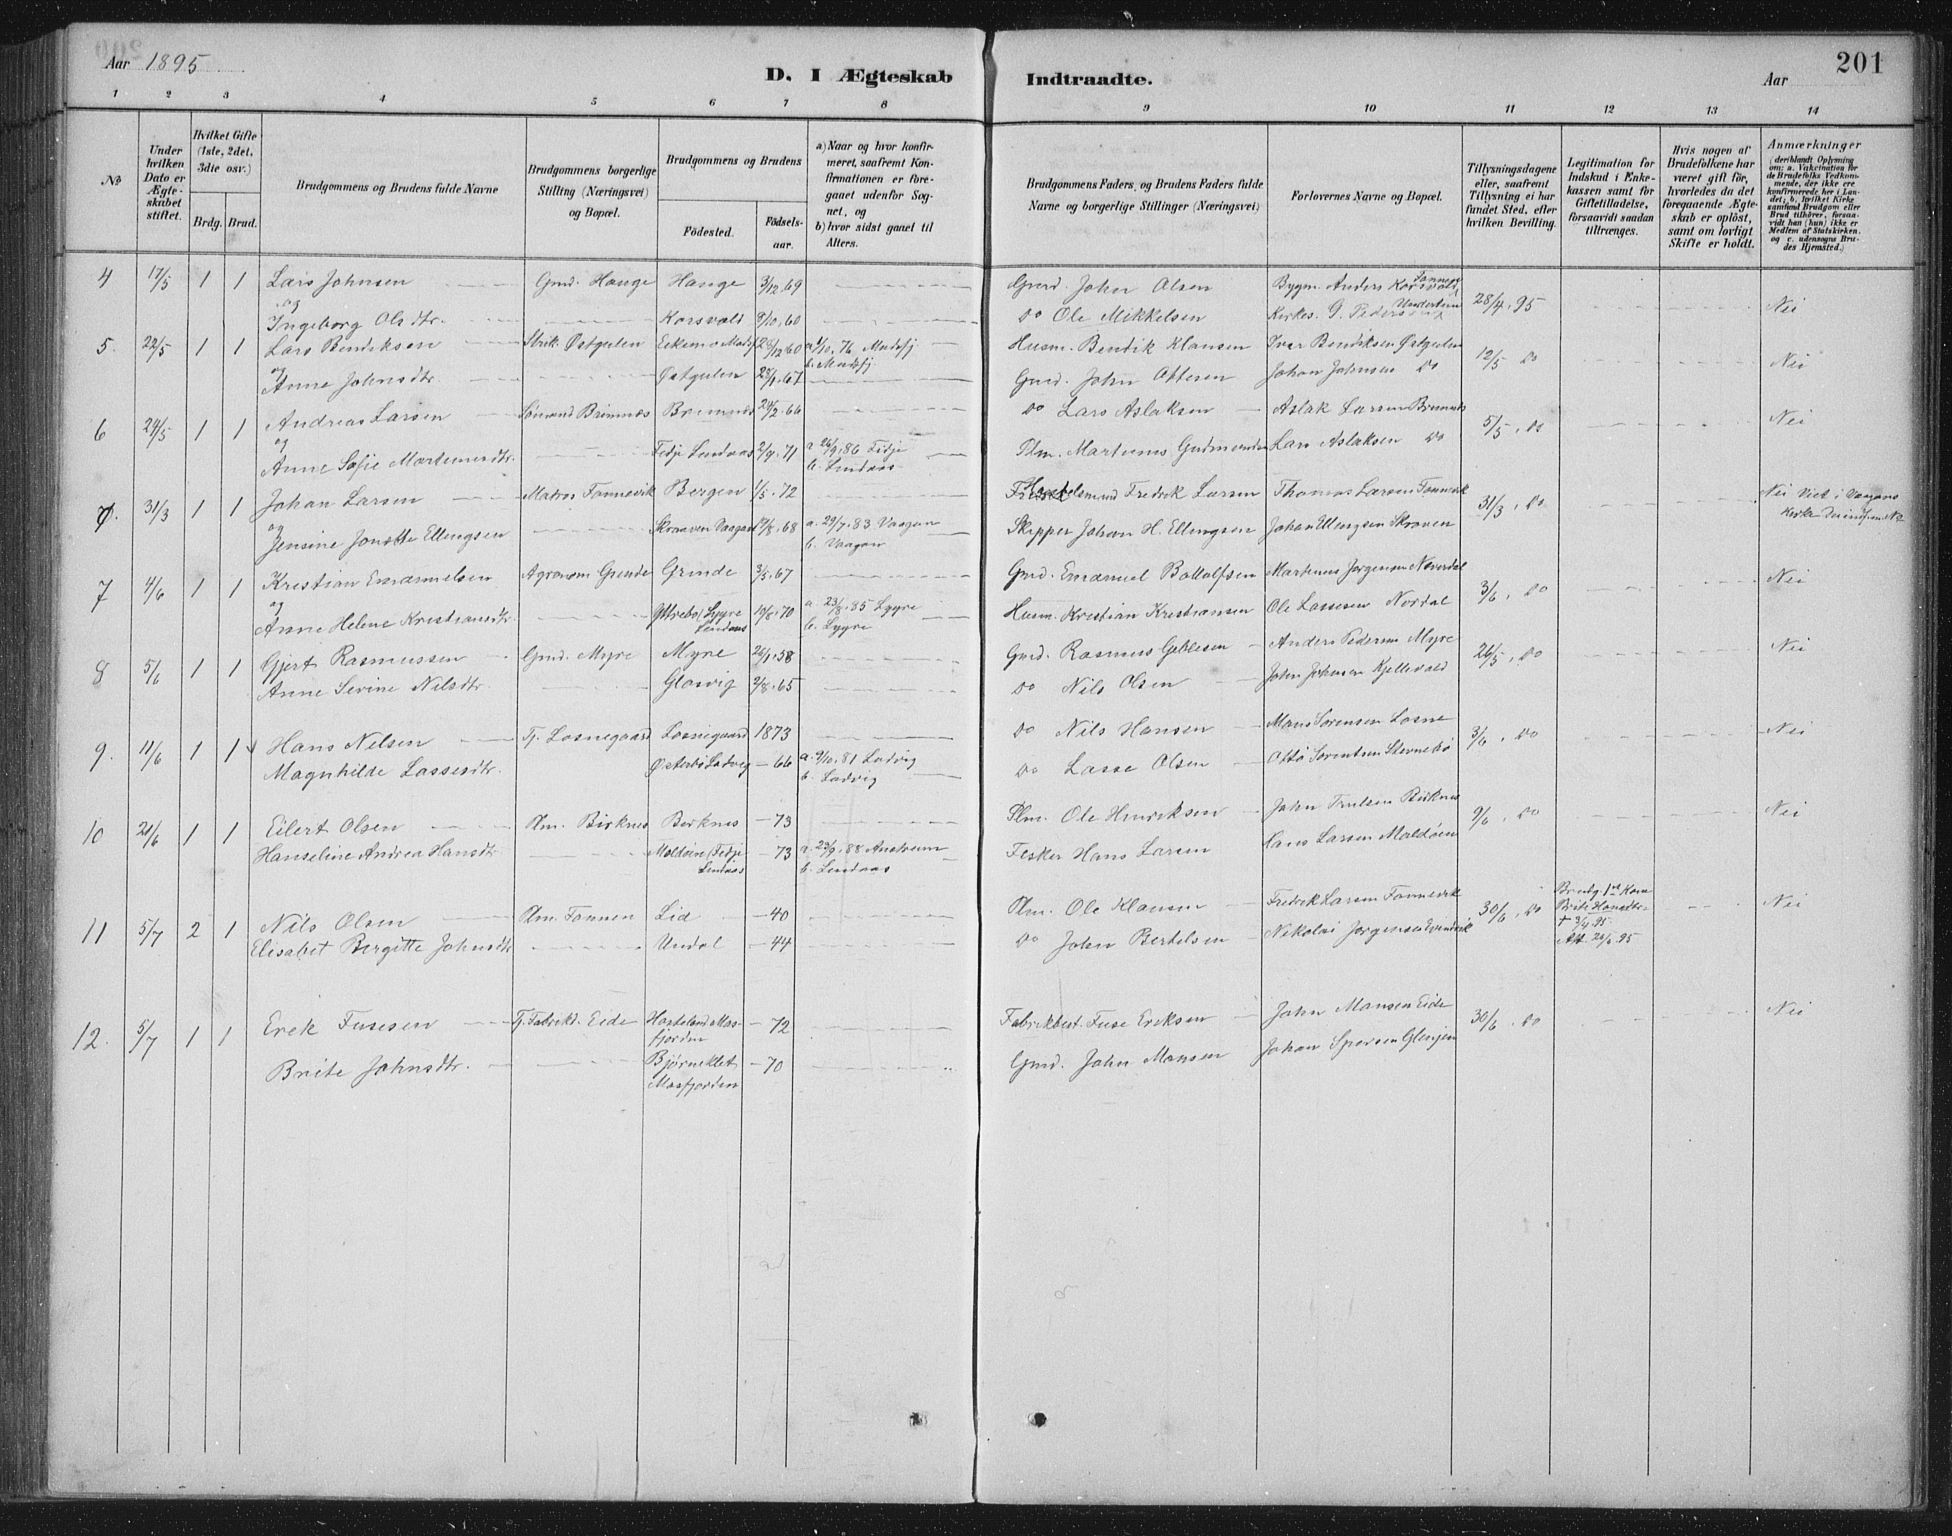 Aar 1895
D. I Ægteskab Indtraadte.
Aar
201
1 2 3 4 5 6 7 8 9 10 11 12 13 14
No
Under hvilken Dato er Ægteskabet stiftet.
Hvilket Gifte (1ste, 2det, 3die osv.)
Brdg. Brud.
Brudgommens og Brudens fulde Navne
Brudgommens borgerlige Stilling (Næringsvei) og Bopæl.
Brudgommens og Brudens
Födested.
Födsels-aar.
a) Naar og hvor konfirmeret, saafremt Konfirmationen er foregaaet udenfor Sognet, og
b) hvor sidst gaaet til Alters.
Brudgommens Faders, og Brudens Faders fulde Navne og borgerlige Stillinger (Næringsvei)
Forlovernes Navne og Bopæl.
Tillysningsdagene eller, saafremt Tillysning ei har fundet Sted, efter hvilken Bevilling.
Legitimation for Indskud i Enkekassen samt for Giftetilladelse, forsaavidt saadan tiltrænges.
Hvis nogen af Brudefolkene har været gift før, hvorledes da det foregaaende Ægteskab er oplöst, samt om lovligt Skifte er holdt.
Anmærkninger
(deriblandt Oplysning om: a. Vakcination for de Brudefolks Vedkommende, der ikke ere konfirmerede her i Landet; b. hvilket Kirkesamfund Brudgom eller Brud tilhører, forsaavidt han (hun) ikke er Medlem af Statskirken. og c. udensogns Brudes Hjemsted.)
4 17/5 1 1 Lars Johnsen Gmd. Hauge Hauge 3/12.69 Gmd. John Olsen Bygm. Anders Korsvold 28/4.95 Nei
og
Ingeborg Olsdtr. Korsvold 8/10.60 do Ole Mikkelsen Kirkes. G. Peders
5. 22/5 1 1 Lars Bendiksen Strik. Østgulen Husm. Bendik Klausen Ivar Bendiksen Østgulen 12/5 do Nei
og
Anne Johnsdtr. Østgulen Gmd. John Ottesen Johan Johnsen do
6 24/5 1 1 Andreas Larsen Sömand Brimnæs Brimnæs 24/2.66 do Lars Aslaksen Aslak Larsen Brimnæs 5/5, do Nei
og
Anne Sofie Martinusdtr. Fedje Lindaas 2/9.71 a 26/9.86 Fedje Plm. Martinus Gudmundsen Lars Aslaksen do
b. Lindaas
31/3 1 1 Johan Larsen Matros Fonnevik Bergen 1/5.72 Fredrik Larsen Thomas Larsen Fonnevik 31/3, do Nei Viet i Vaagans
og Kirke
Jensine Jonette Ellingsen Skraaven Vaagan a. 29/7.83 Vaagan Skipper Johan H. Ellingsen Johan Ellingsen Skroven
b. Vaagan
7 4/6 1 1 Kristian Emanuelsen Agronom Grinde Grinde 3/5.67 Gmd. Emanuel Bottolfsen Martinus Jørgensen 3/6, do Nei
og
Anne Helene Kristiansdtr. Yttrebø Lygre Lindaas 19/8.70 a. 23/8.85 Lygre Husm. Kristian Kristiansen Ole Lassesen Nordal
b. Lygre
8 5/6 1 1 Gjert Rasmussen Gmd. Myre Myre 26/1.58 Gmd. Rasmus Geblesen Anders Pedersen Myre 26/5, do Nei
Anne Serine Nilsdtr. Glosvig 2/8.65 do Nils Olsen John Johnsen Kjellevold
9. 11/6 1 1 Hans Nilsen Tj. Losnegaard Losnegaard 1873 do Nils Hansen Mons Sørensen Losne 3/6, do Nei
Magnhilde Lassesdtr. Østerbø Ladvig - 66 a. 9/10.81 Ladvig do Lasse Olsen Otto Sørensen
b. Ladvig
10 21/6 1 1 Eilert Olsen Plm. Birknes Birknes - 73 Plm. Ole Henriksen John Trulsen Birknes 9/6, do Nei
Hanseline Andrea Hansdtr. Moldöen Fedje Lindaas - 73 a. 23/9.88 Austrheim Fisker Hans Larsen Hans Larsen Moldöen
b. Lindaas
11 5/7 2 1 Nils Olsen Plm. Fonnen Lid - 40 Plm. Ole Klausen Fredrik Larsen Fonnevik 30/6, do Brudg. 1st Kone Nei
Brite Hansdtr.
Elisabet Birgitte Johnsdtr. Undal - 44 do John Bertelsen Nikolai Jørgensen
12. 5/7 1 1 Erik Fusesen Tj. Fabrikt. Eide Hosteland Masfjorden - 72 Fabrikbest. Fuse Eriksen John Monsen Eide 30/6, do Nei
Brite Johnsdtr. Masfjorden - 70 Gmd. John Monsen Johan